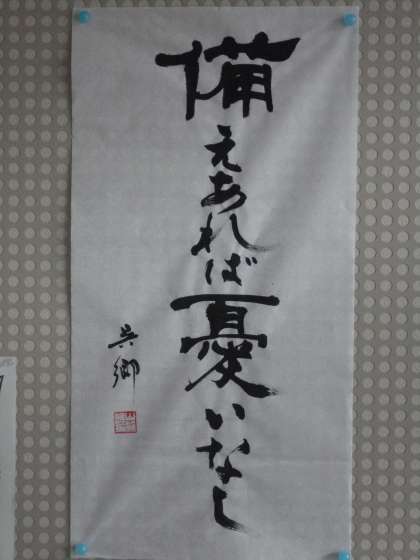 備えあれば憂いなし